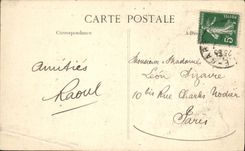 CARTE POSTALE
Correspondance
Amitiés
Raoul
Monsieur Madame
Léon Dizaire
10 bis Rue Charles Nodier
Paris
5